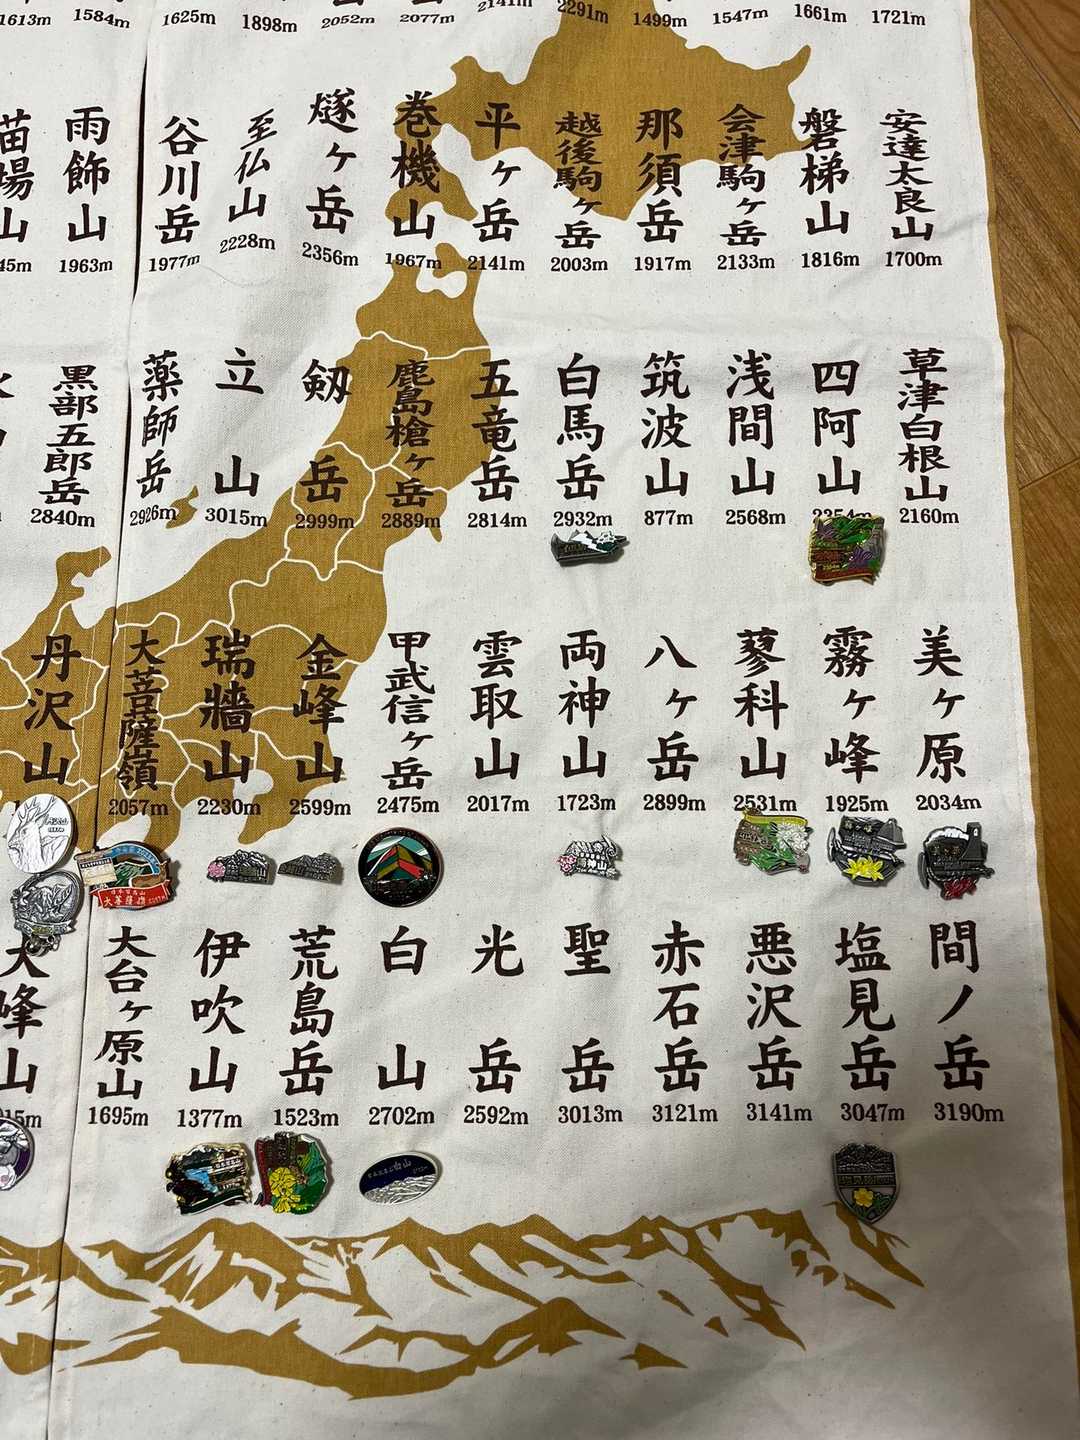 1613m 1584m 1625m 1898m 2052m 2077m 2141m 2291m 1499m 1547m 1661m 1721m
苗場山 雨飾山 谷川岳 至仏山 燧ヶ岳 巻機山 平ヶ岳 越後駒ヶ岳 那須岳 会津駒ヶ岳 磐梯山 安達太良山
45m 1963m 1977m 2228m 2356m 1967m 2141m 2003m 1917m 2133m 1816m 1700m
黒部五郎岳 薬師岳 立山 剱岳 鹿島槍ヶ岳 五竜岳 白馬岳 筑波山 浅間山 四阿山 草津白根山
2840m 2926m 3015m 2999m 2889m 2814m 2932m 877m 2568m 2354m 2160m
丹沢山 大菩薩嶺 瑞牆山 金峰山 甲武信ヶ岳 雲取山 両神山 八ヶ岳 蓼科山 霧ヶ峰 美ヶ原
2057m 2230m 2599m 2475m 2017m 1723m 2899m 2531m 1925m 2034m
大菩薩嶺
大峰山 大台ヶ原山 伊吹山 荒島岳 白山 光岳 聖岳 赤石岳 悪沢岳 塩見岳 間ノ岳
15m 1695m 1377m 1523m 2702m 2592m 3013m 3121m 3141m 3047m 3190m